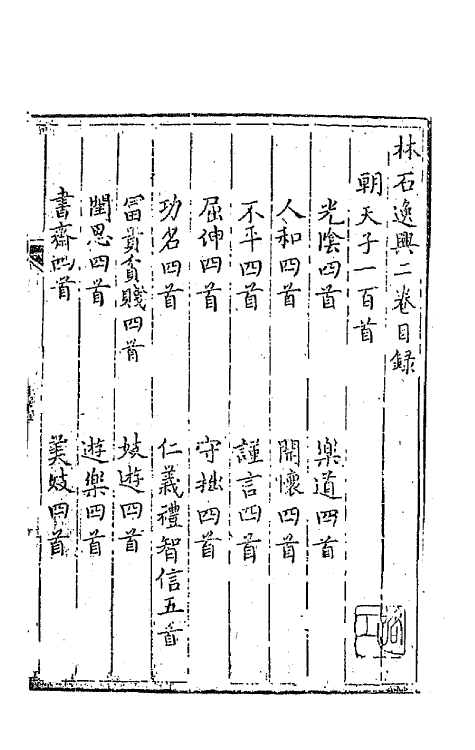 林石逸興二卷目録
朝天子一百首
光陰四首
樂道四首
人和四首
開懷四首
不平四首
謹言四首
屈伸四首
守拙四首
功名四首
仁義禮智信五首
富貴貧賤四首
妓遊四首
閨思四首
遊樂四首
書齋四首
美妓四首